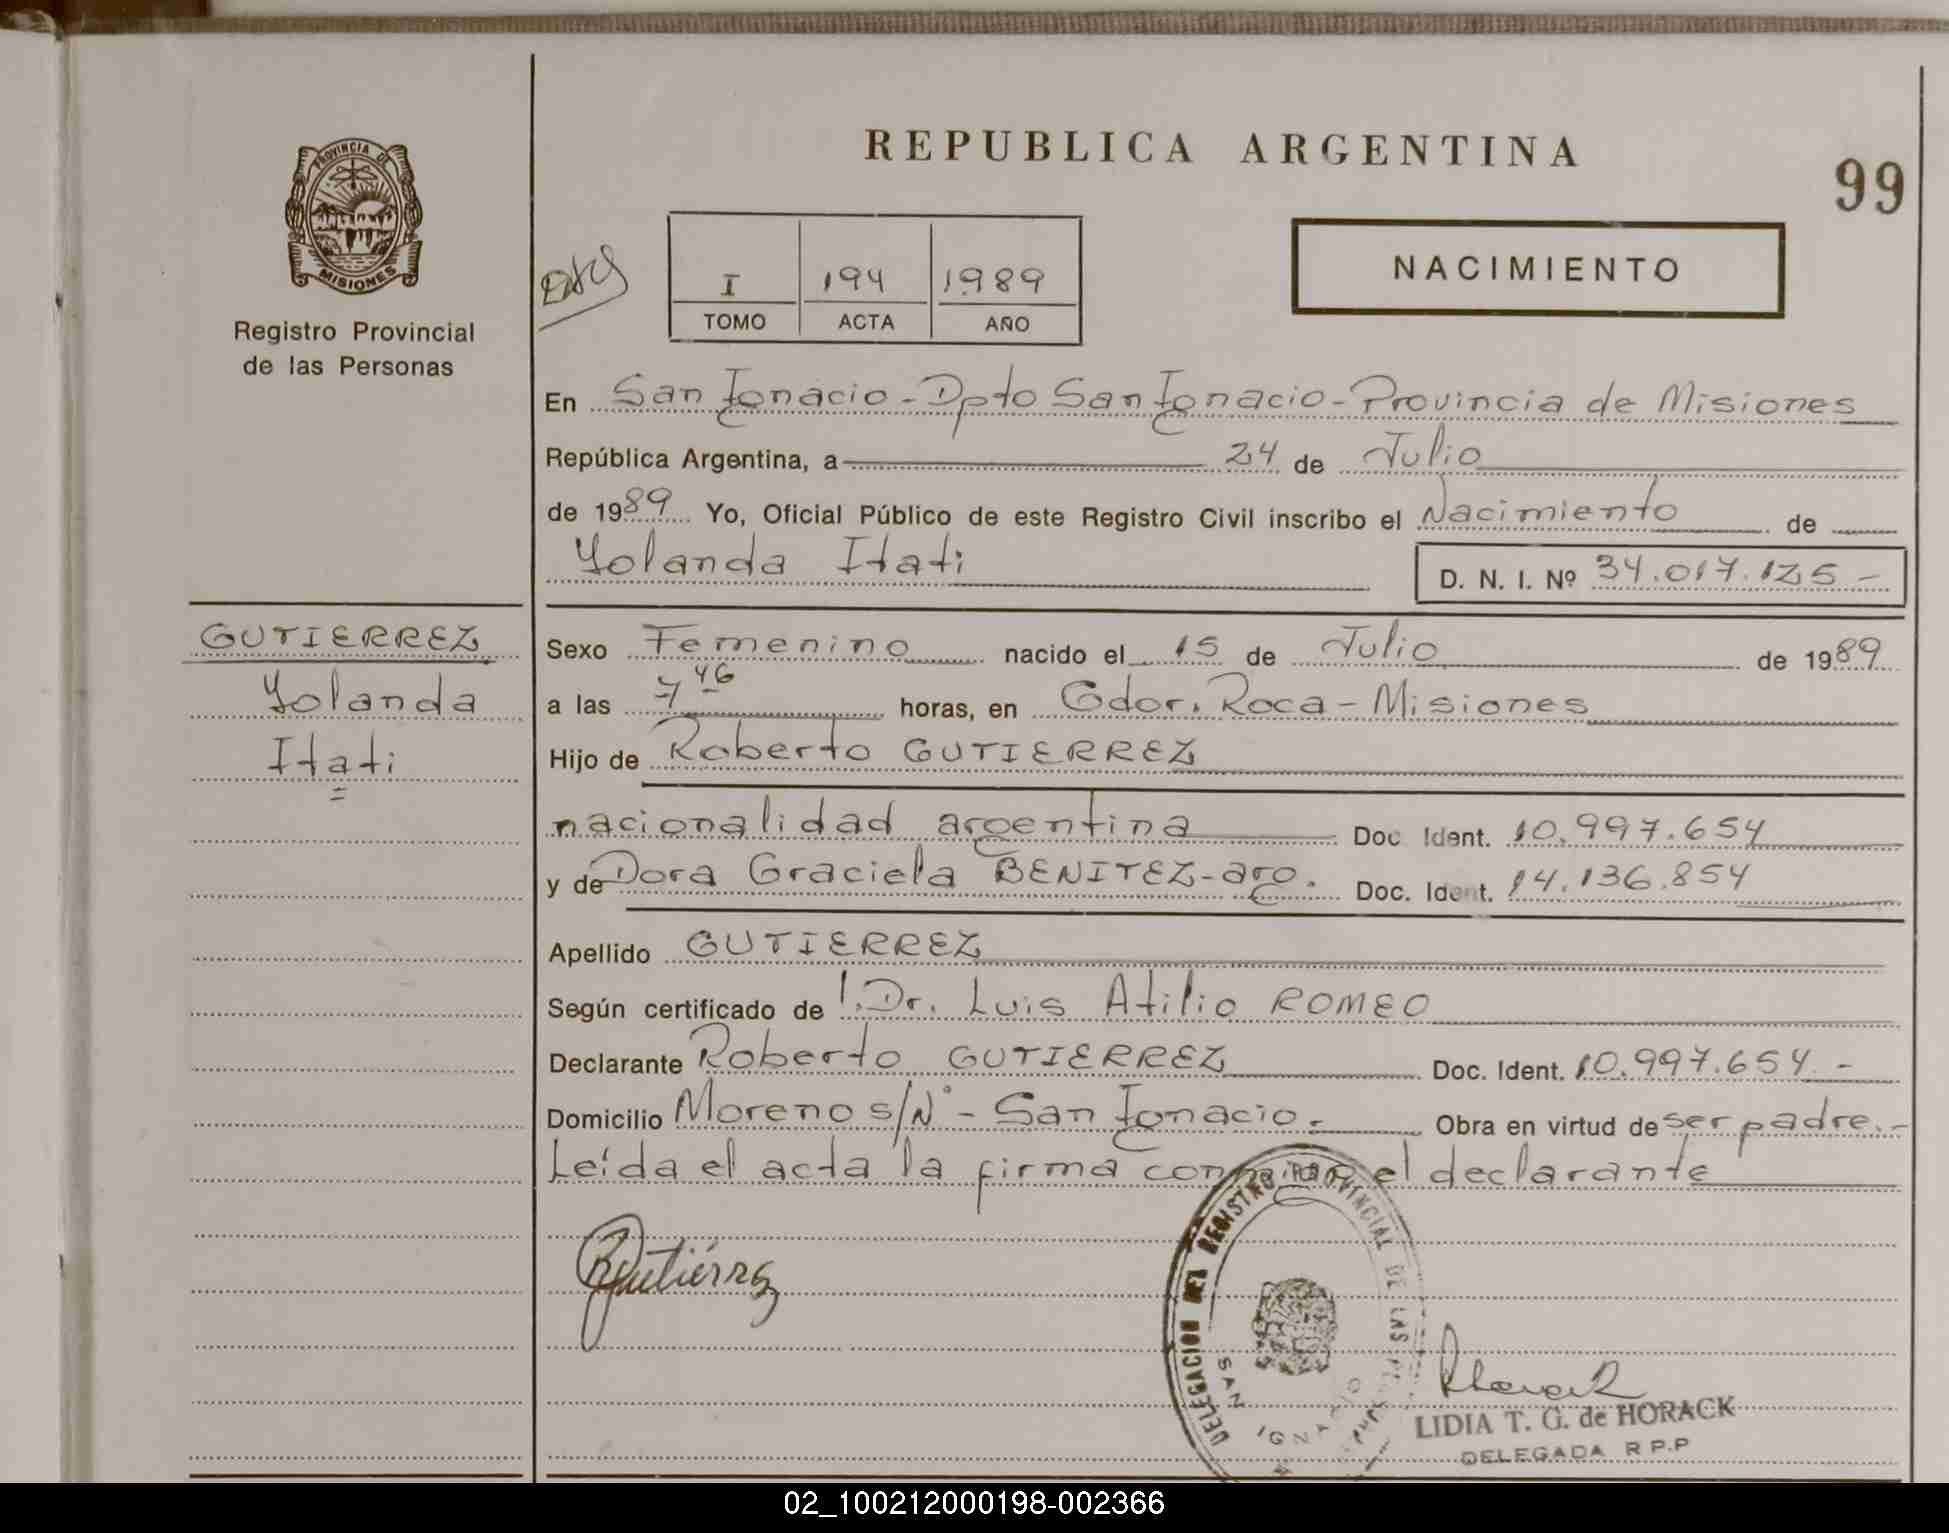 REPUBLICA ARGENTINA
99
PROVINCIA DE
MISIONES
Registro Provincial
de las Personas
I 194 1989
TOMO ACTA AÑO
NACIMIENTO
En San Ignacio - Dpto San Ignacio - Provincia de Misiones
República Argentina, a 24 de Julio
de 1989 Yo, Oficial Público de este Registro Civil inscribo el Nacimiento de
Yolanda Itati D. N. I. Nº 34.017.125 -
GUTIERREZ
Yolanda
Itati
Sexo Femenino nacido el 15 de Julio de 1989
a las 7 46 horas, en Gdor. Roca - Misiones
Hijo de Roberto GUTIERREZ
nacionalidad argentina Doc Ident. 10.997.654
y de Dora Graciela BENITEZ - arg. Doc. Ident. 14.136.854
Apellido GUTIERREZ
Según certificado de l. Dr. Luis Atilio ROMEO
Declarante Roberto GUTIERREZ Doc. Ident. 10.997.654 -
Domicilio Moreno s/N° - San Ignacio.- Obra en virtud de ser padre.-
Leída el acta la firma conmigo el declarante
RGutiérrez
DELEGACION DEL REGISTRO PROVINCIAL DE LAS
SAN IGNACIO
LIDIA T. G. de HORACK
DELEGADA R P.P
02_100212000198-002366